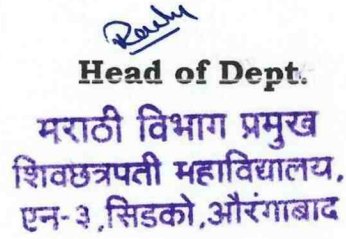 Head of Dept.
मराठी विभाग प्रमुख
शिवछत्रपती महाविद्यालय,
एन-३,सिडको,औरंगाबाद